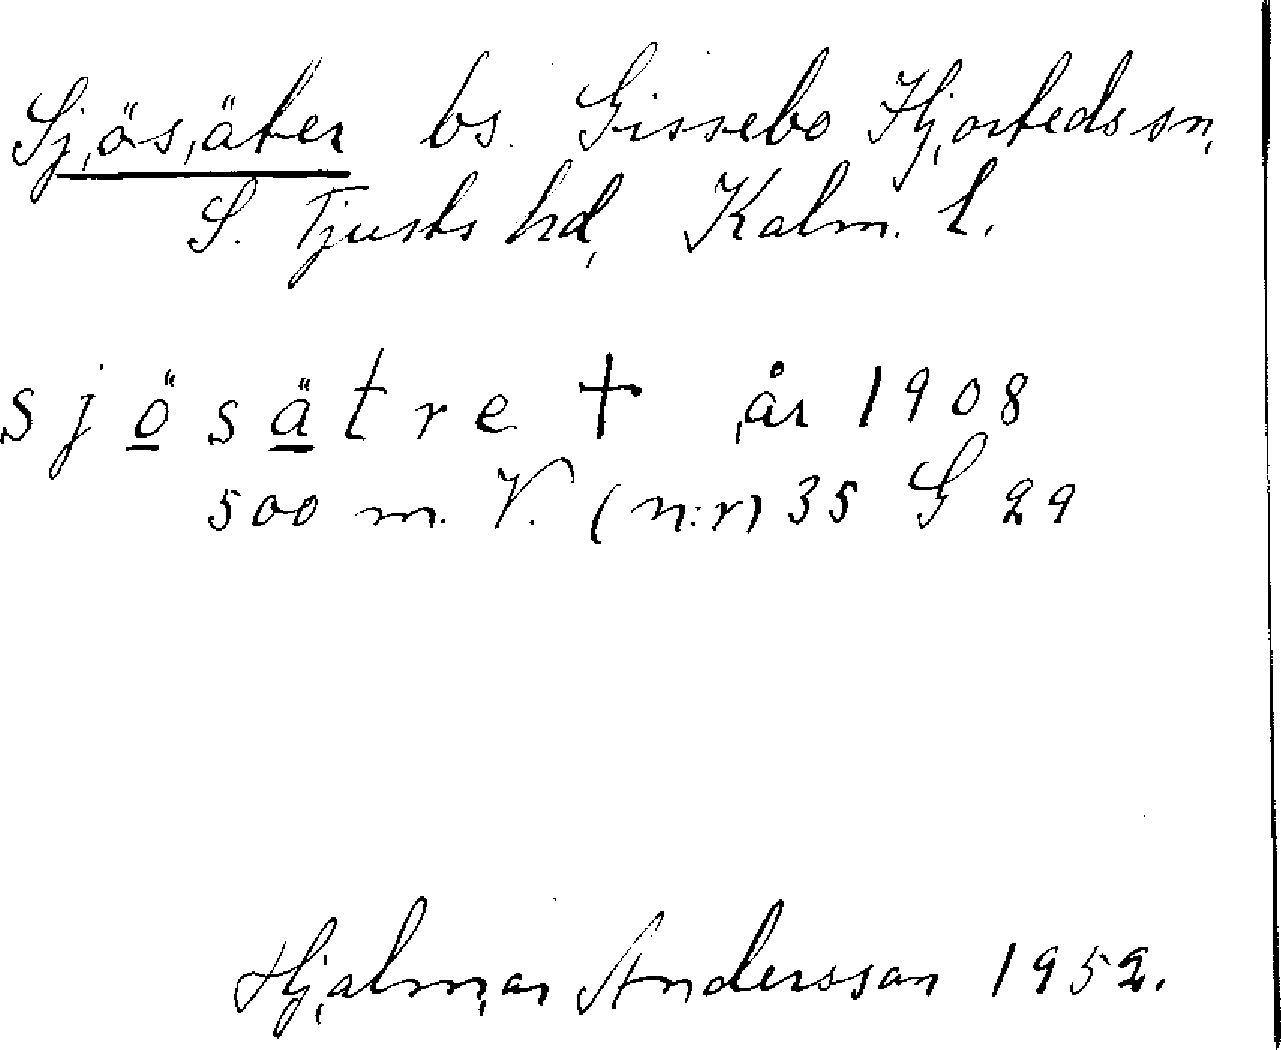 Sjösäter bs. Gissebo Hjorteds sn,
S. Tjusts hd, Kalm. l.
sjösätre † år 1908
500 m. V. (n:r) 35 G 29
Hjalmar Andersson 1952.